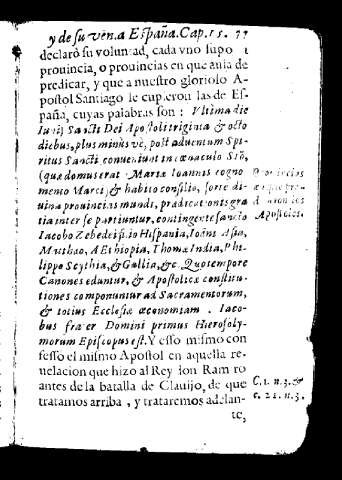 y de su ven. a España. Cap. 15. 77
declarò su voluntad, cada vno supo
prouincia, o prouincias en que auia de
predicar, y que a nuestro glorioso A-
postol Santiago le cupieron las de Es-
paña, cuyas palabras son: Vltima die
Iunij Sancti Dei Apostoli triginta & octo
diebus, plus minùs vè, post aduentum Spi-
ritus Sancti conueniunt in cœnaculo Siõ,
(quæ domus erat Mariæ Ioannis cogno
mento Marci) & habito consilio, sorte di-
uina prouincias mundi, prædicationis gra
tia inter se partiuntur, contingente sancto
Iacobo Zebedei filio Hispania, Ioãni Asia,
Matthæo, AEthiopia, Thomæ India, Phi-
lippo Scythia, & Gallia, &c. Quo tempore
Canones eduntur, & Apostolicæ constitu-
tiones componuntur ad Sacramentorum,
& totius Ecclesiæ œconomiam. Iaco-
bus frater Domini primus Hierosoly-
morum Episcopus est. Y esso mismo con
fessò el mismo Apostol en aquella re-
uelacion que hizo al Rey don Ram ro
antes de la batalla de Clauijo, de que
tratamos arriba, y trataremos adelan-
te,
Prouincias
Apostoles.
C. 1. n. 3. &
c. 21. n. 3.